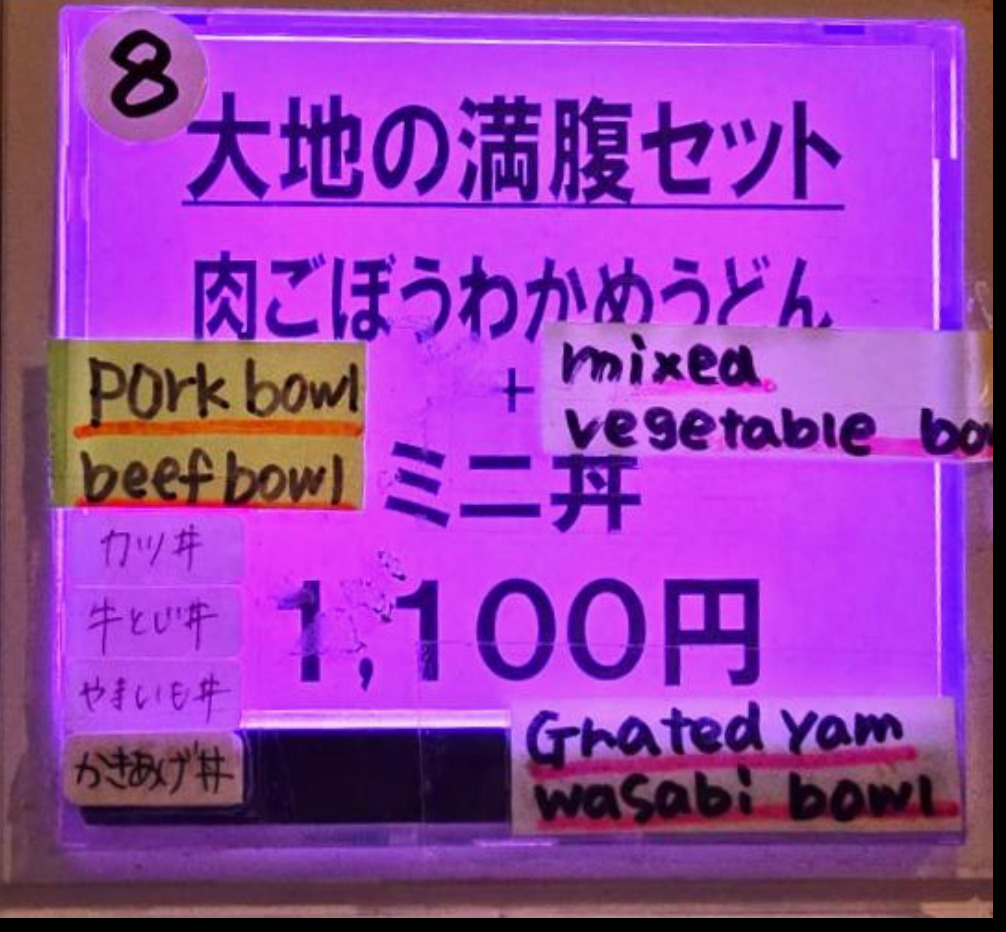 8
大地の満腹セット
肉ごぼうわかめうどん
+
mixed
vegetable bo
pork bowl
beef bowl
ミニ丼
カツ丼
牛とじ丼
やまいも丼
かきあげ丼
1,100円
Grated yam
wasabi bowl